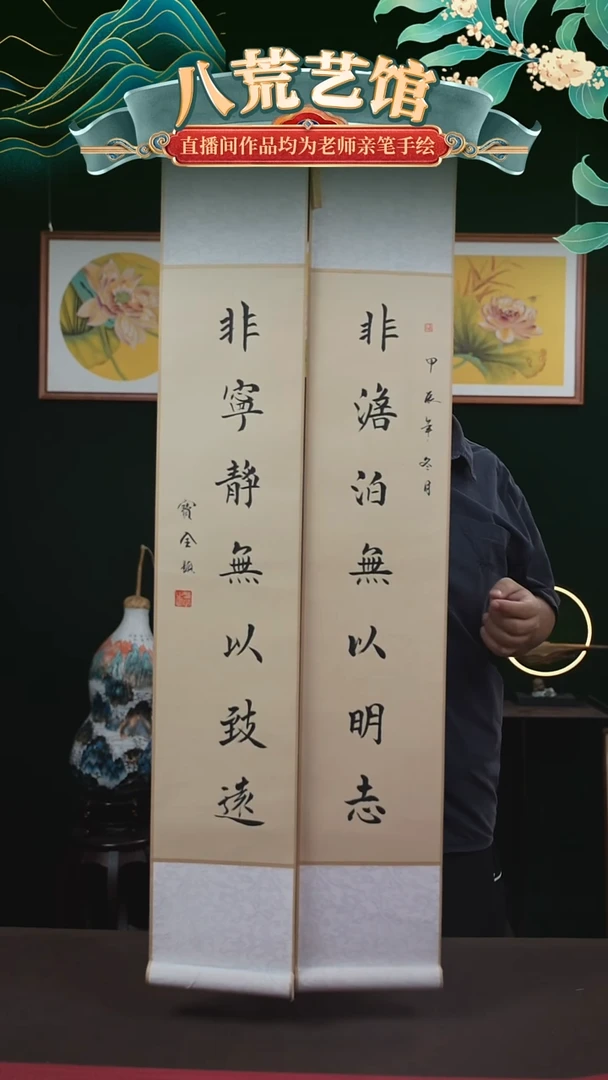 八荒艺馆
直播间作品均为老师亲笔手绘
甲辰年冬月
非澹泊無以明志
非寧靜無以致遠
寶全題